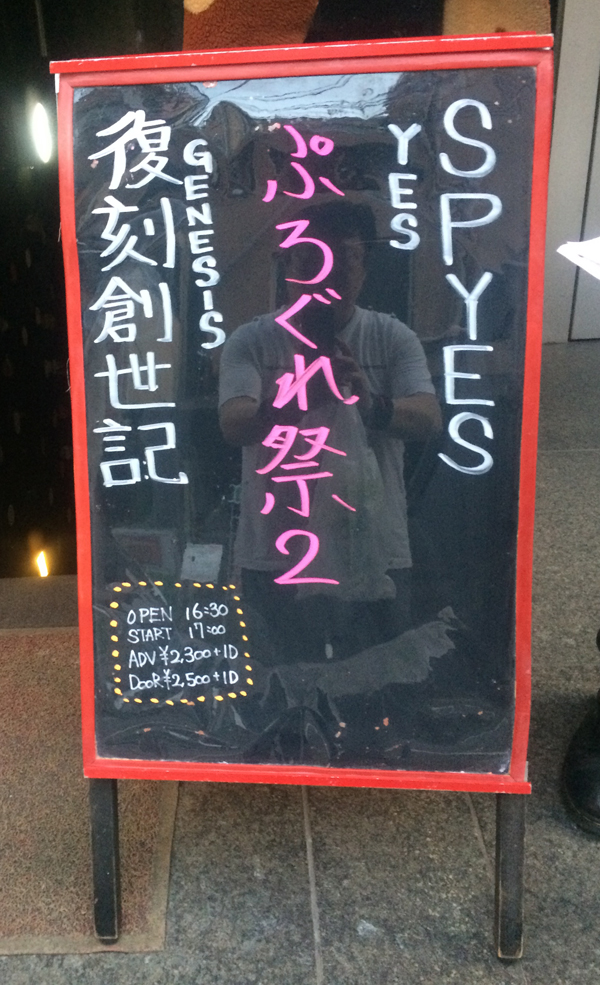 SPYES
YES
ぷろぐれ祭2
GENESIS
復刻創世記
OPEN 16:30
START 17:00
ADV ¥2,300+1D
DOOR ¥2,500+1D